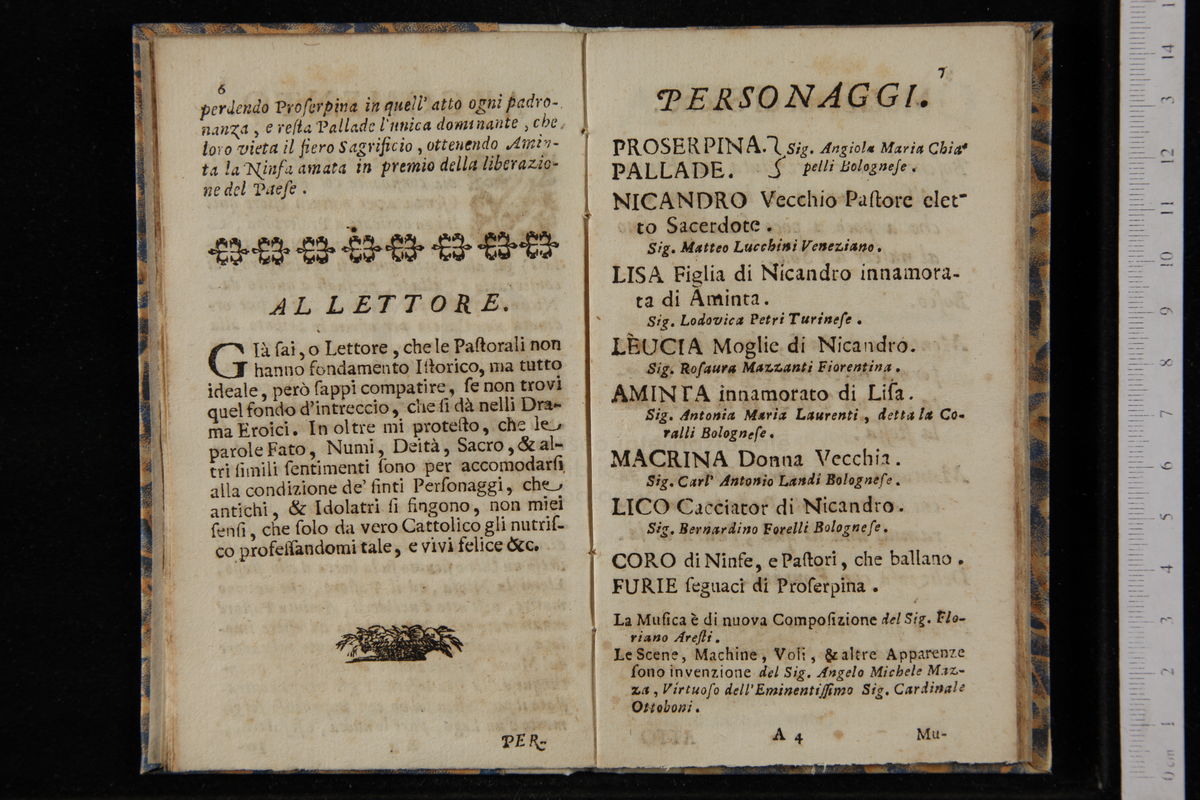 6
perdendo Proſerpina in quell' atto ogni padro-
nanza, e reſta Pallade l'unica dominante, che
loro vieta il fiero Sagrificio, ottenendo Amin-
ta la Ninfa amata in premio della liberazio-
ne del Paeſe.
AL LETTORE.
GIà ſai, o Lettore, che le Paſtorali non
hanno fondamento Iſtorico, ma tutto
ideale, però ſappi compatire, ſe non trovi
quel fondo d'intreccio, che ſi dà nelli Dra-
ma Eroici. In oltre mi proteſto, che le
parole Fato, Numi, Deità, Sacro, & al-
tri ſimili ſentimenti ſono per accomodarſi
alla condizione de' finti Perſonaggi, che
antichi, & Idolatri ſi fingono, non miei
ſenſi, che ſolo da vero Cattolico gli nutriſ-
co profeſſandomi tale, e vivi felice &c.
PER-
7
PERSONAGGI.
PROSERPINA. } Sig. Angiola Maria Chia-
PALLADE. } pelli Bologneſe.
NICANDRO Vecchio Paſtore elet-
to Sacerdote.
Sig. Matteo Lucchini Veneziano.
LISA Figlia di Nicandro innamora-
ta di Aminta.
Sig. Lodovica Petri Turineſe.
LEUCIA Moglie di Nicandro.
Sig. Roſaura Mazzanti Fiorentina.
AMINTA innamorato di Liſa.
Sig. Antonia Maria Laurenti, detta la Co-
ralli Bologneſe.
MACRINA Donna Vecchia.
Sig. Carl' Antonio Landi Bologneſe.
LICO Cacciator di Nicandro.
Sig. Bernardino Forelli Bologneſe.
CORO di Ninfe, e Paſtori, che ballano.
FURIE ſeguaci di Proſerpina.
La Muſica è di nuova Compoſizione del Sig. Flo-
riano Areſti.
Le Scene, Machine, Voli, & altre Apparenze
ſono invenzione del Sig. Angelo Michele Maz-
za, Virtuoſo dell'Eminentiſſimo Sig. Cardinale
Ottoboni.
A 4
Mu-
0 cm 1 2 3 4 5 6 7 8 9 10 11 12 13 14